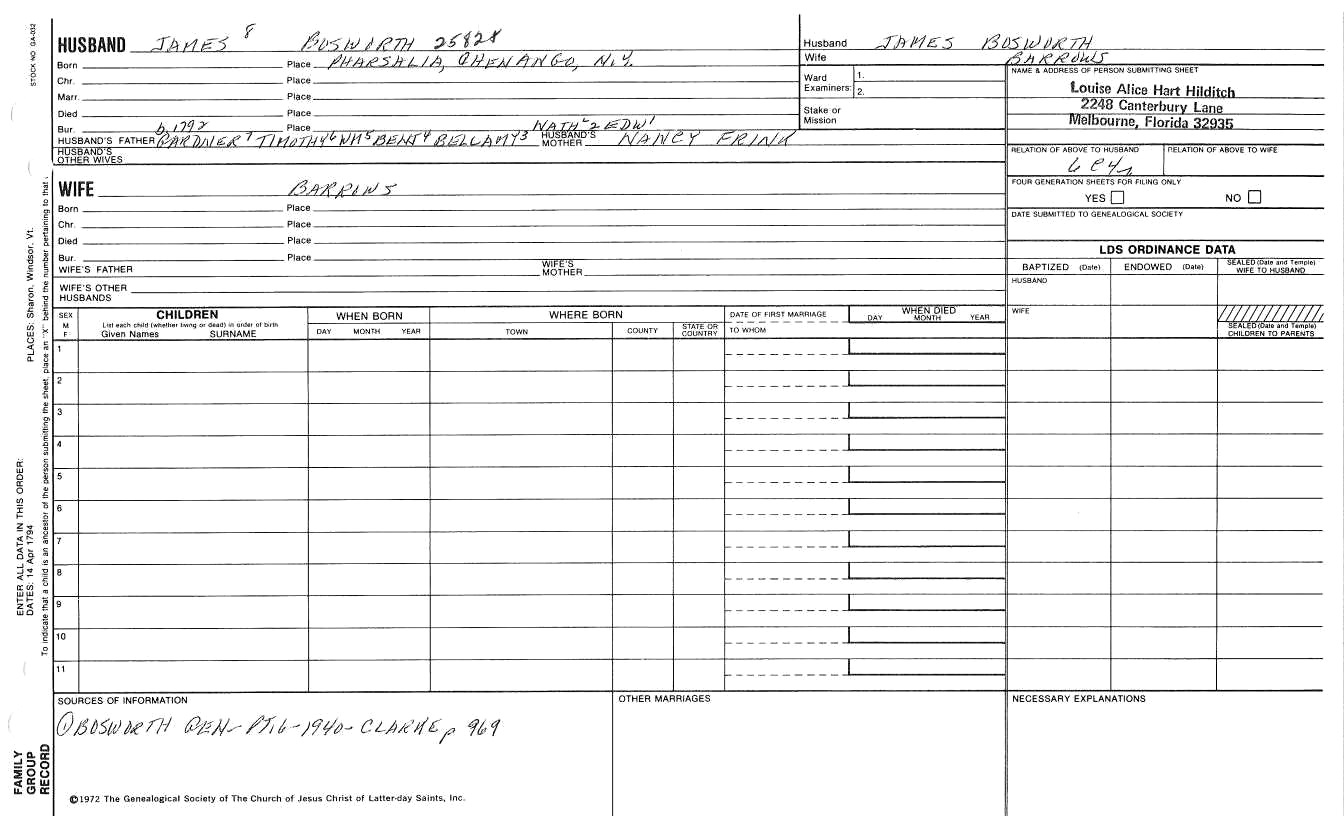 STOCK NO GA-032
HUSBAND JAMES 8 BOSWORTH 25828
Born Place PHARSALIA, CHENANGO, N.Y.
Chr. Place
Marr. Place
Died Place
Bur. b. 1792 Place NATH 2 EDW 1
HUSBAND'S FATHER GARDNER 7 TIMOTHY 6 WM 5 BENJ 4 BELLAMY 3 HUSBAND'S MOTHER NANCY FRINK
HUSBAND'S OTHER WIVES
Husband JAMES BOSWORTH
Wife BARROWS
Ward Examiners: 1.
2.
Stake or Mission
NAME & ADDRESS OF PERSON SUBMITTING SHEET
Louise Alice Hart Hilditch
2248 Canterbury Lane
Melbourne, Florida 32935
RELATION OF ABOVE TO HUSBAND RELATION OF ABOVE TO WIFE
6 C 4
FOUR GENERATION SHEETS FOR FILING ONLY
YES NO
DATE SUBMITTED TO GENEALOGICAL SOCIETY
WIFE BARROWS
Born Place
Chr. Place
Died Place
Bur. Place
WIFE'S FATHER WIFE'S MOTHER
WIFE'S OTHER HUSBANDS
LDS ORDINANCE DATA
BAPTIZED (Date) ENDOWED (Date) SEALED (Date and Temple) WIFE TO HUSBAND
HUSBAND
WIFE
SEALED (Date and Temple) CHILDREN TO PARENTS
SEX M F
CHILDREN
List each child (whether living or dead) in order of birth
Given Names SURNAME
WHEN BORN
DAY MONTH YEAR
WHERE BORN
TOWN COUNTY STATE OR COUNTRY
DATE OF FIRST MARRIAGE
TO WHOM
WHEN DIED
DAY MONTH YEAR
1
2
3
4
5
6
7
8
9
10
11
SOURCES OF INFORMATION
① BOSWORTH GEN- PT.6-1940- CLARKE p 969
OTHER MARRIAGES
NECESSARY EXPLANATIONS
©1972 The Genealogical Society of The Church of Jesus Christ of Latter-day Saints, Inc.
FAMILY GROUP RECORD
ENTER ALL DATA IN THIS ORDER:
DATES: 14 Apr 1794
PLACES: Sharon, Windsor, Vt.
To indicate that a child is an ancestor of the person submitting the sheet, place an "X" behind the number pertaining to that